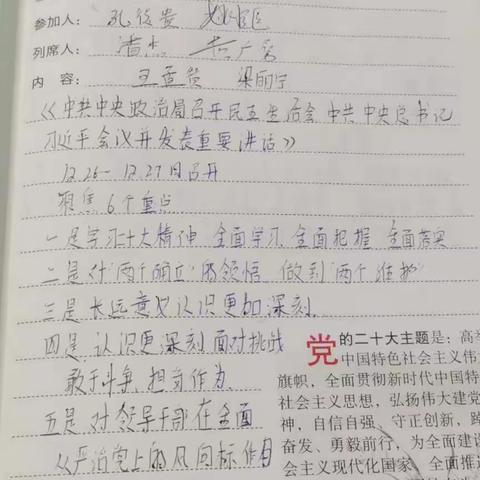 参加人：孔德贵
列席人：
内 容：
《中共中央政治局召开民主生活会 中共中央总书记
习近平会议并发表重要讲话》
12.26—12.27日召开
聚焦6个重点
一是学习二十大精神 全面学习 全面把握 全面落实
二是对"两个确立"的领悟 做到"两个维护"
三是长远意义认识更加深刻.
四是 认识更深刻 面对挑战
敢于斗争、担当作为
五是 对领导干部在全面
从严治党上的风向标作用
党的二十大主题是：高举
中国特色社会主义伟
旗帜，全面贯彻新时代中国特
社会主义思想，弘扬伟大建党
神，自信自强、守正创新，踔
奋发、勇毅前行，为全面建设
会主义现代化国家、全面推进